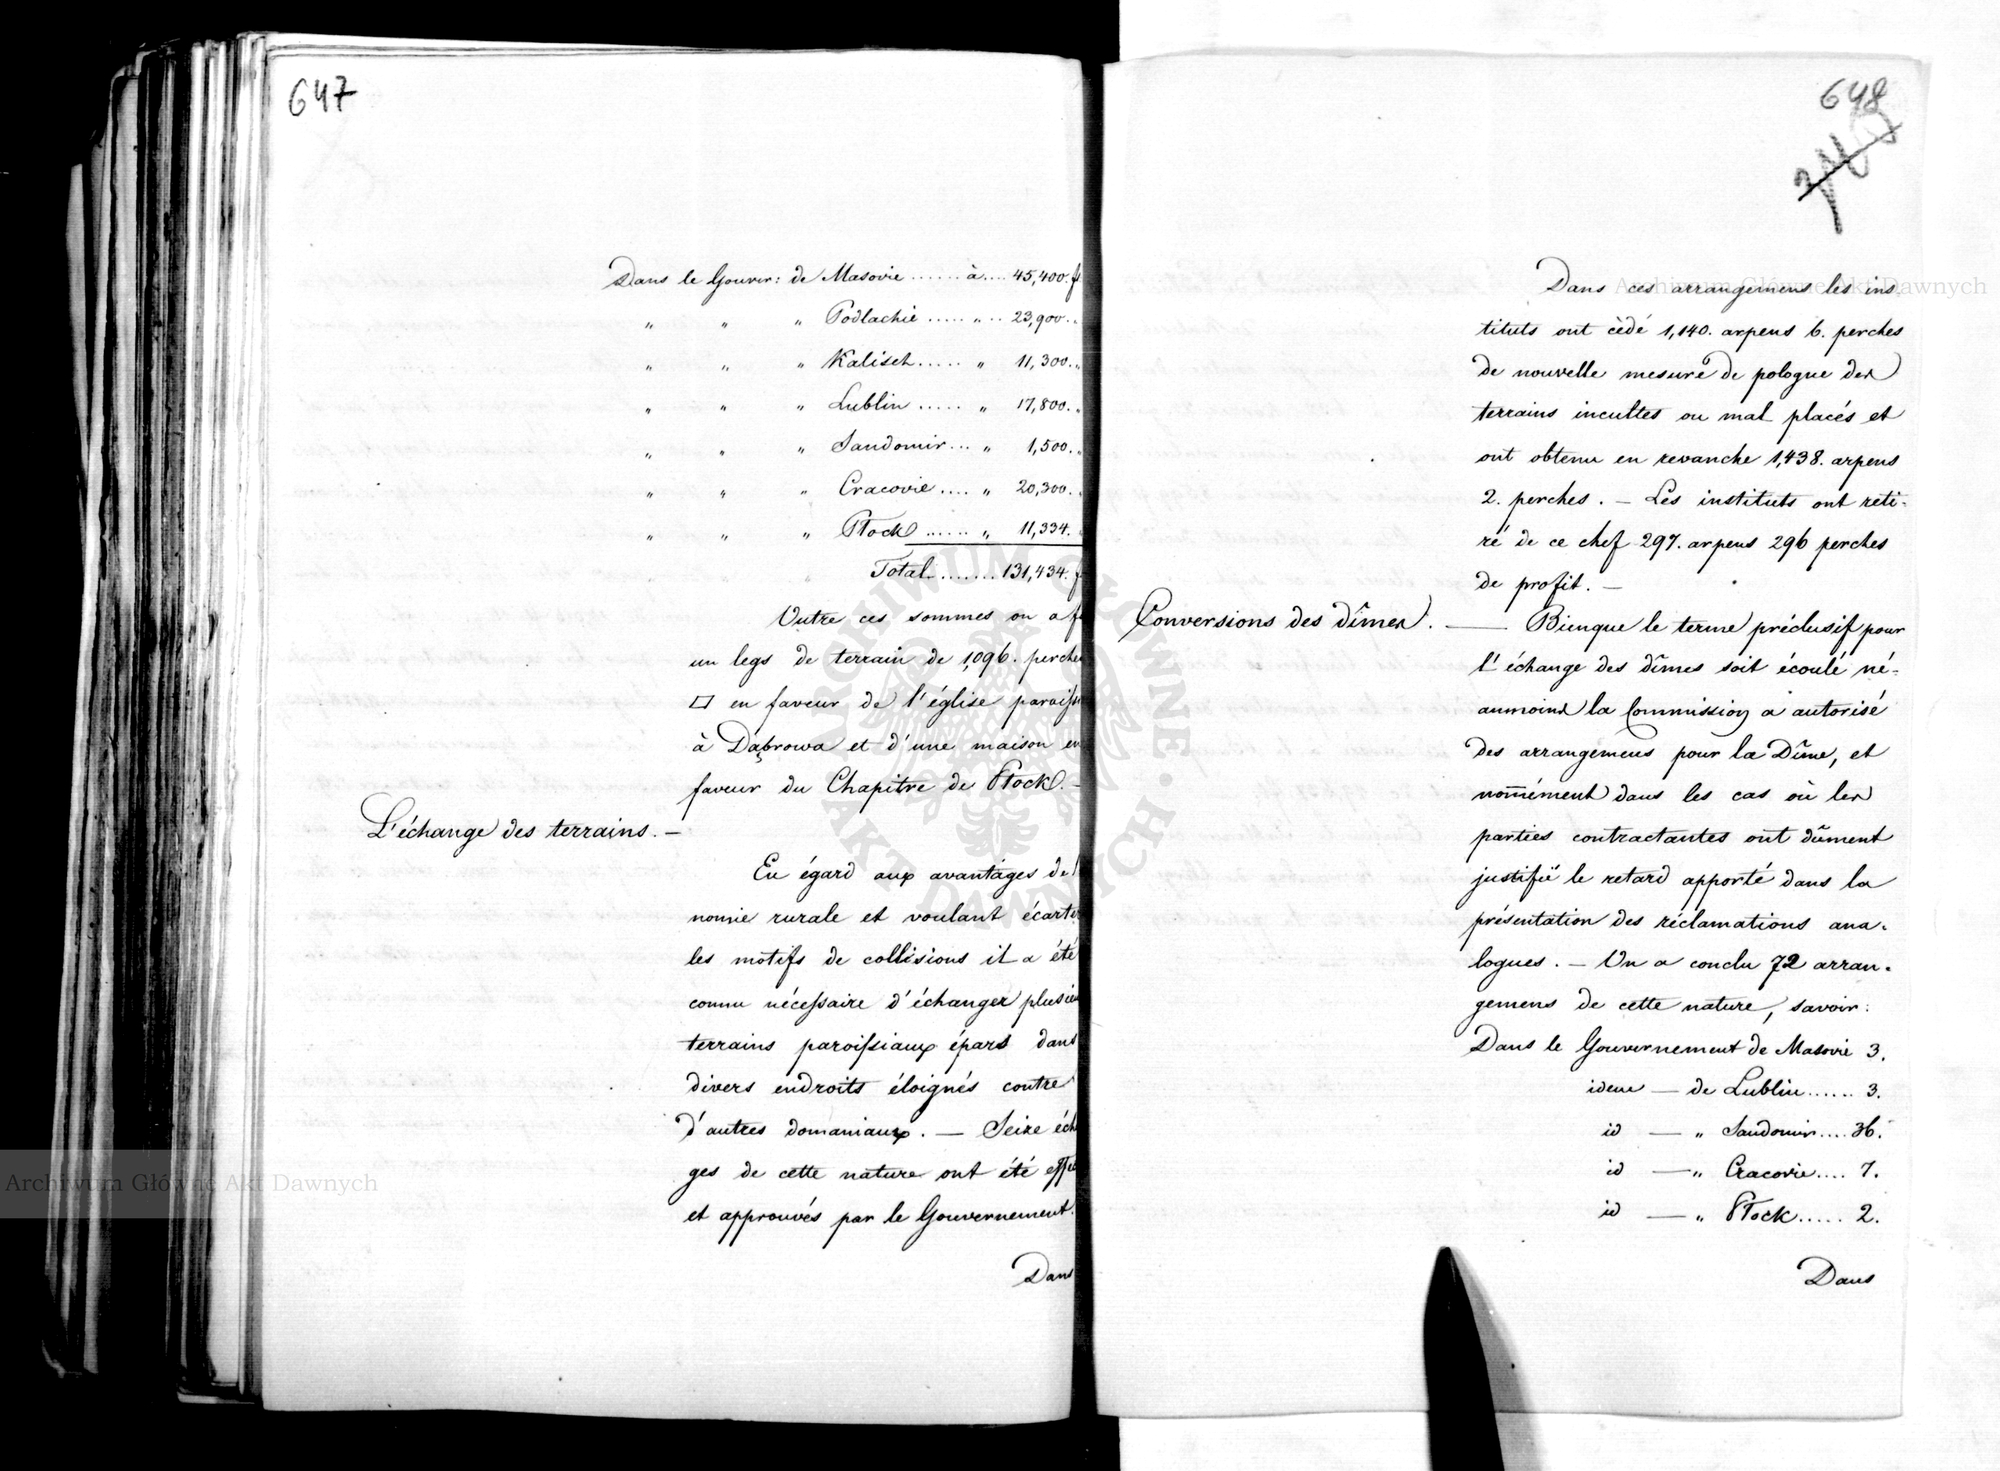 647
Dans le Gouver: de Masovie ...... à .... 45,400. f
" " " Podlachie ..... " .. 23,900. "
" " " Kalisch ..... " 11,300. "
" " " Lublin ..... " 17,800. "
" " " Sandomir ... " 1,500. "
" " " Cracovie .... " 20,300.
" " " Płock ...... " 11,334.
Total ....... 131,434. f
Outre ces sommes on a f
un legs de terrain de 1,096. perches
□ en faveur de l'église paroiss
à Dąbrowa et d'une maison en
faveur du Chapitre de Płock. -
L'échange des terrains. —
Eu égard aux avantages de l
nomie rurale et voulant écarter
les motifs de collisions il a été
connu nécessaire d'échanger plusieu
terrains paroissiaux épars dans
divers endroits éloignés contre
d'autres domaniaux. — Seize éch
ges de cette nature ont été effec
et approuvés par le Gouvernement.
Dans
648
Dans ces arrangemens les ins
tituts ont cédé 1,140. arpens 6. perches
de nouvelle mesure de pologne des
terrains incultes ou mal placés et
ont obtenu en revanche 1,438. arpens
2. perches. — Les instituts ont reti-
ré de ce chef 297. arpens 296 perches
de profit. —
Conversions des dîmes. — Bienque le terme préclusif pour
l'échange des dîmes soit écoulé né-
anmoins la Commission a autorisé
des arrangemens pour la Dîme, et
nom̄ément dans les cas où les
parties contractantes ont dûment
justifié le retard apporté dans la
présentation des réclamations ana-
logues. — On a conclu 72 arran-
gemens de cette nature, savoir:
Dans le Gouvernement de Masovie 3.
idem — de Lublin ...... 3.
id — " Sandomir .... 36.
id — " Cracovie .... 7.
id — " Płock ..... 2.
Dans
Archiwum Główne Akt Dawnych
Archiwum Główne Akt Dawnych
ARCHIWUM GŁÓWNE AKT DAWNYCH